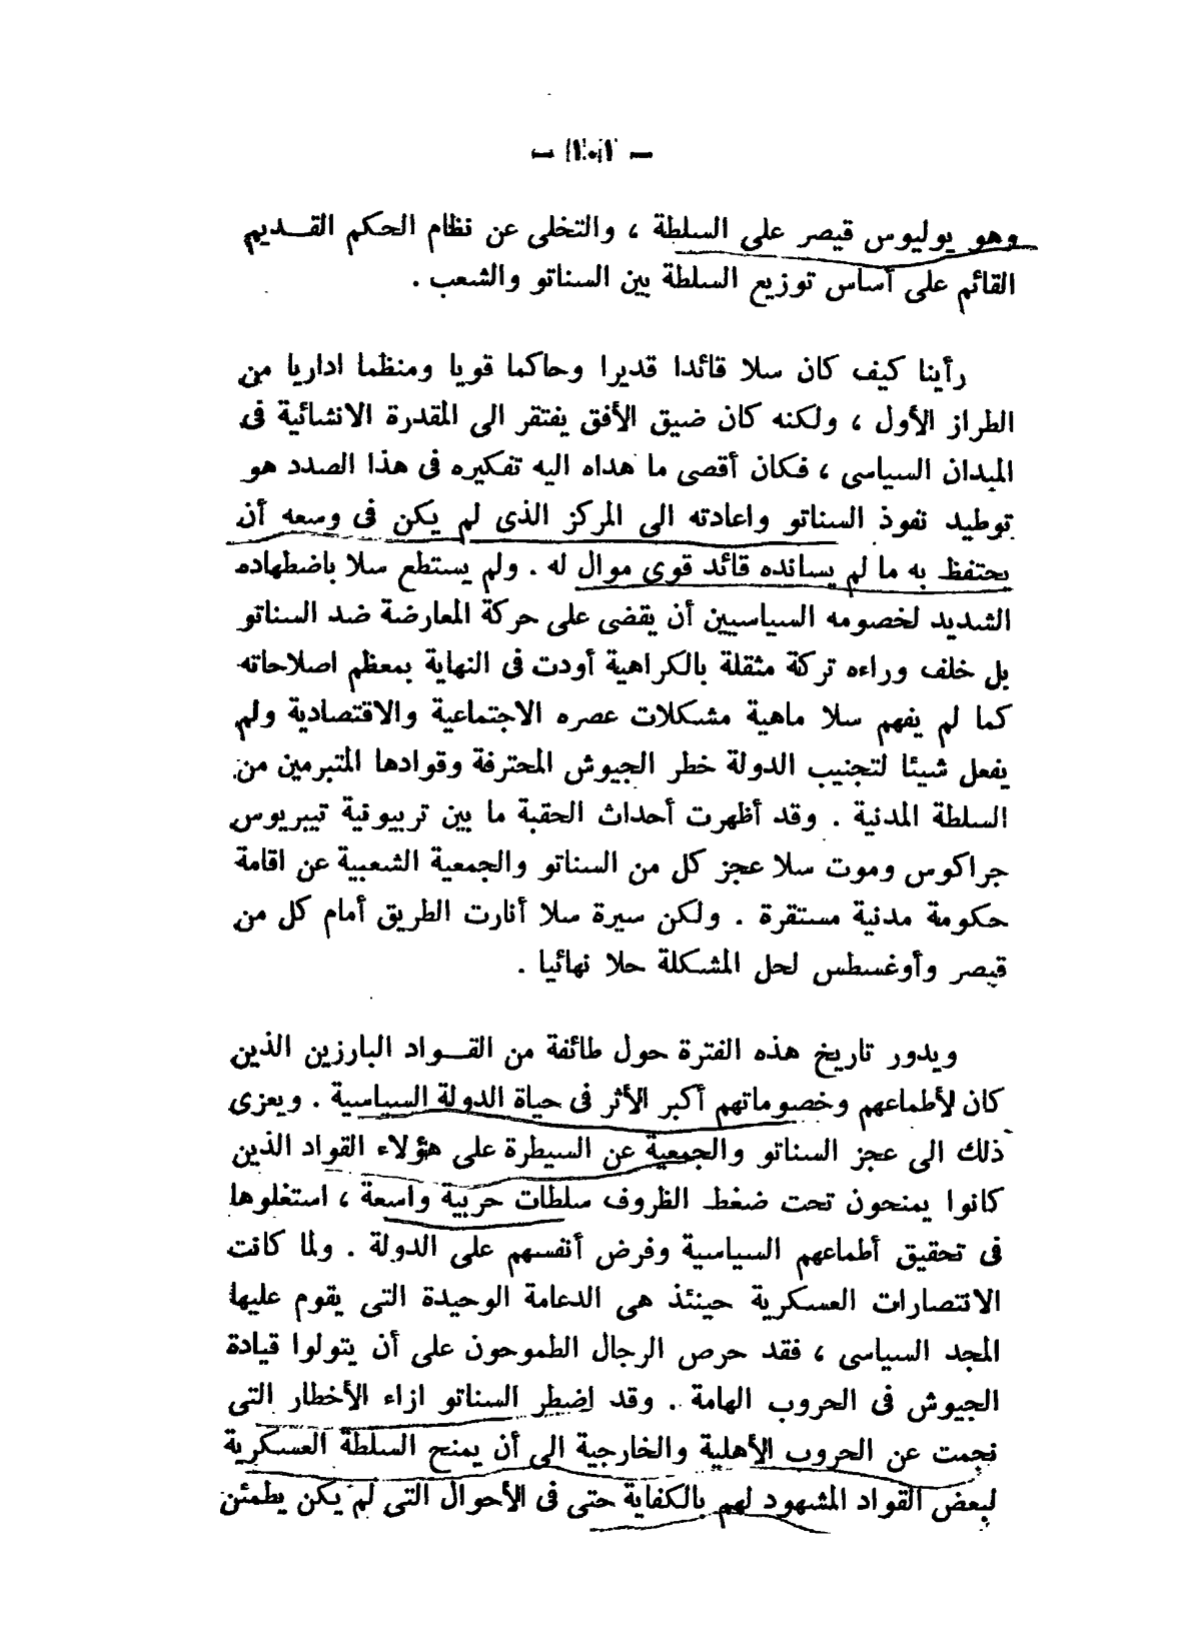 وهو يوليوس قيصر على السلطة ، والتخلى عن نظام الحكم القـــديم
القائم على أساس توزيع السلطة بين السناتو والشعب .
رأينا كيف كان سلا قائدا قديرا وحاكما قويا ومنظما اداريا من
الطراز الأول ، ولكنه كان ضيق الأفق يفتقر الى المقدرة الانشائية فى
الميدان السياسى ، فكان أقصى ما هداه اليه تفكيره فى هذا الصدد هو
توطيد نفوذ السناتو واعادته الى المركز الذى لم يكن فى وسعه أن
يحتفظ به ما لم يسانده قائد قوى موال له . ولم يستطع سلا باضطهاده
الشديد لخصومه السياسيين أن يقضى على حركة المعارضة ضد السناتو
بل خلف وراءه تركة مثقلة بالكراهية أودت فى النهاية بمعظم اصلاحاته
كما لم يفهم سلا ماهية مشكلات عصره الاجتماعية والاقتصادية ولم
يفعل شيئا لتجنيب الدولة خطر الجيوش المحترفة وقوادها المتبرمين من
السلطة المدنية . وقد أظهرت أحداث الحقبة ما بين تربيونية تيبريوس
جراكوس وموت سلا عجز كل من السناتو والجمعية الشعبية عن اقامة
حكومة مدنية مستقرة . ولكن سيرة سلا أنارت الطريق أمام كل من
قيصر وأوغسطس لحل المشكلة حلا نهائيا .
ويدور تاريخ هذه الفترة حول طائفة من القـــواد البارزين الذين
كان لأطماعهم وخصوماتهم أكبر الأثر فى حياة الدولة السياسية . ويعزى
ذلك الى عجز السناتو والجمعية عن السيطرة على هؤلاء القواد الذين
كانوا يمنحون تحت ضغط الظروف سلطات حربية واسعة ، استغلوها
فى تحقيق أطماعهم السياسية وفرض أنفسهم على الدولة . ولما كانت
الانتصارات العسكرية حينئذ هى الدعامة الوحيدة التى يقوم عليها
المجد السياسى ، فقد حرص الرجال الطموحون على أن يتولوا قيادة
الجيوش فى الحروب الهامة . وقد اضطر السناتو ازاء الأخطار التى
نجمت عن الحروب الأهلية والخارجية الى أن يمنح السلطة العسكرية
لبعض القواد المشهود لهم بالكفاية حتى فى الأحوال التى لم يكن يطمئن